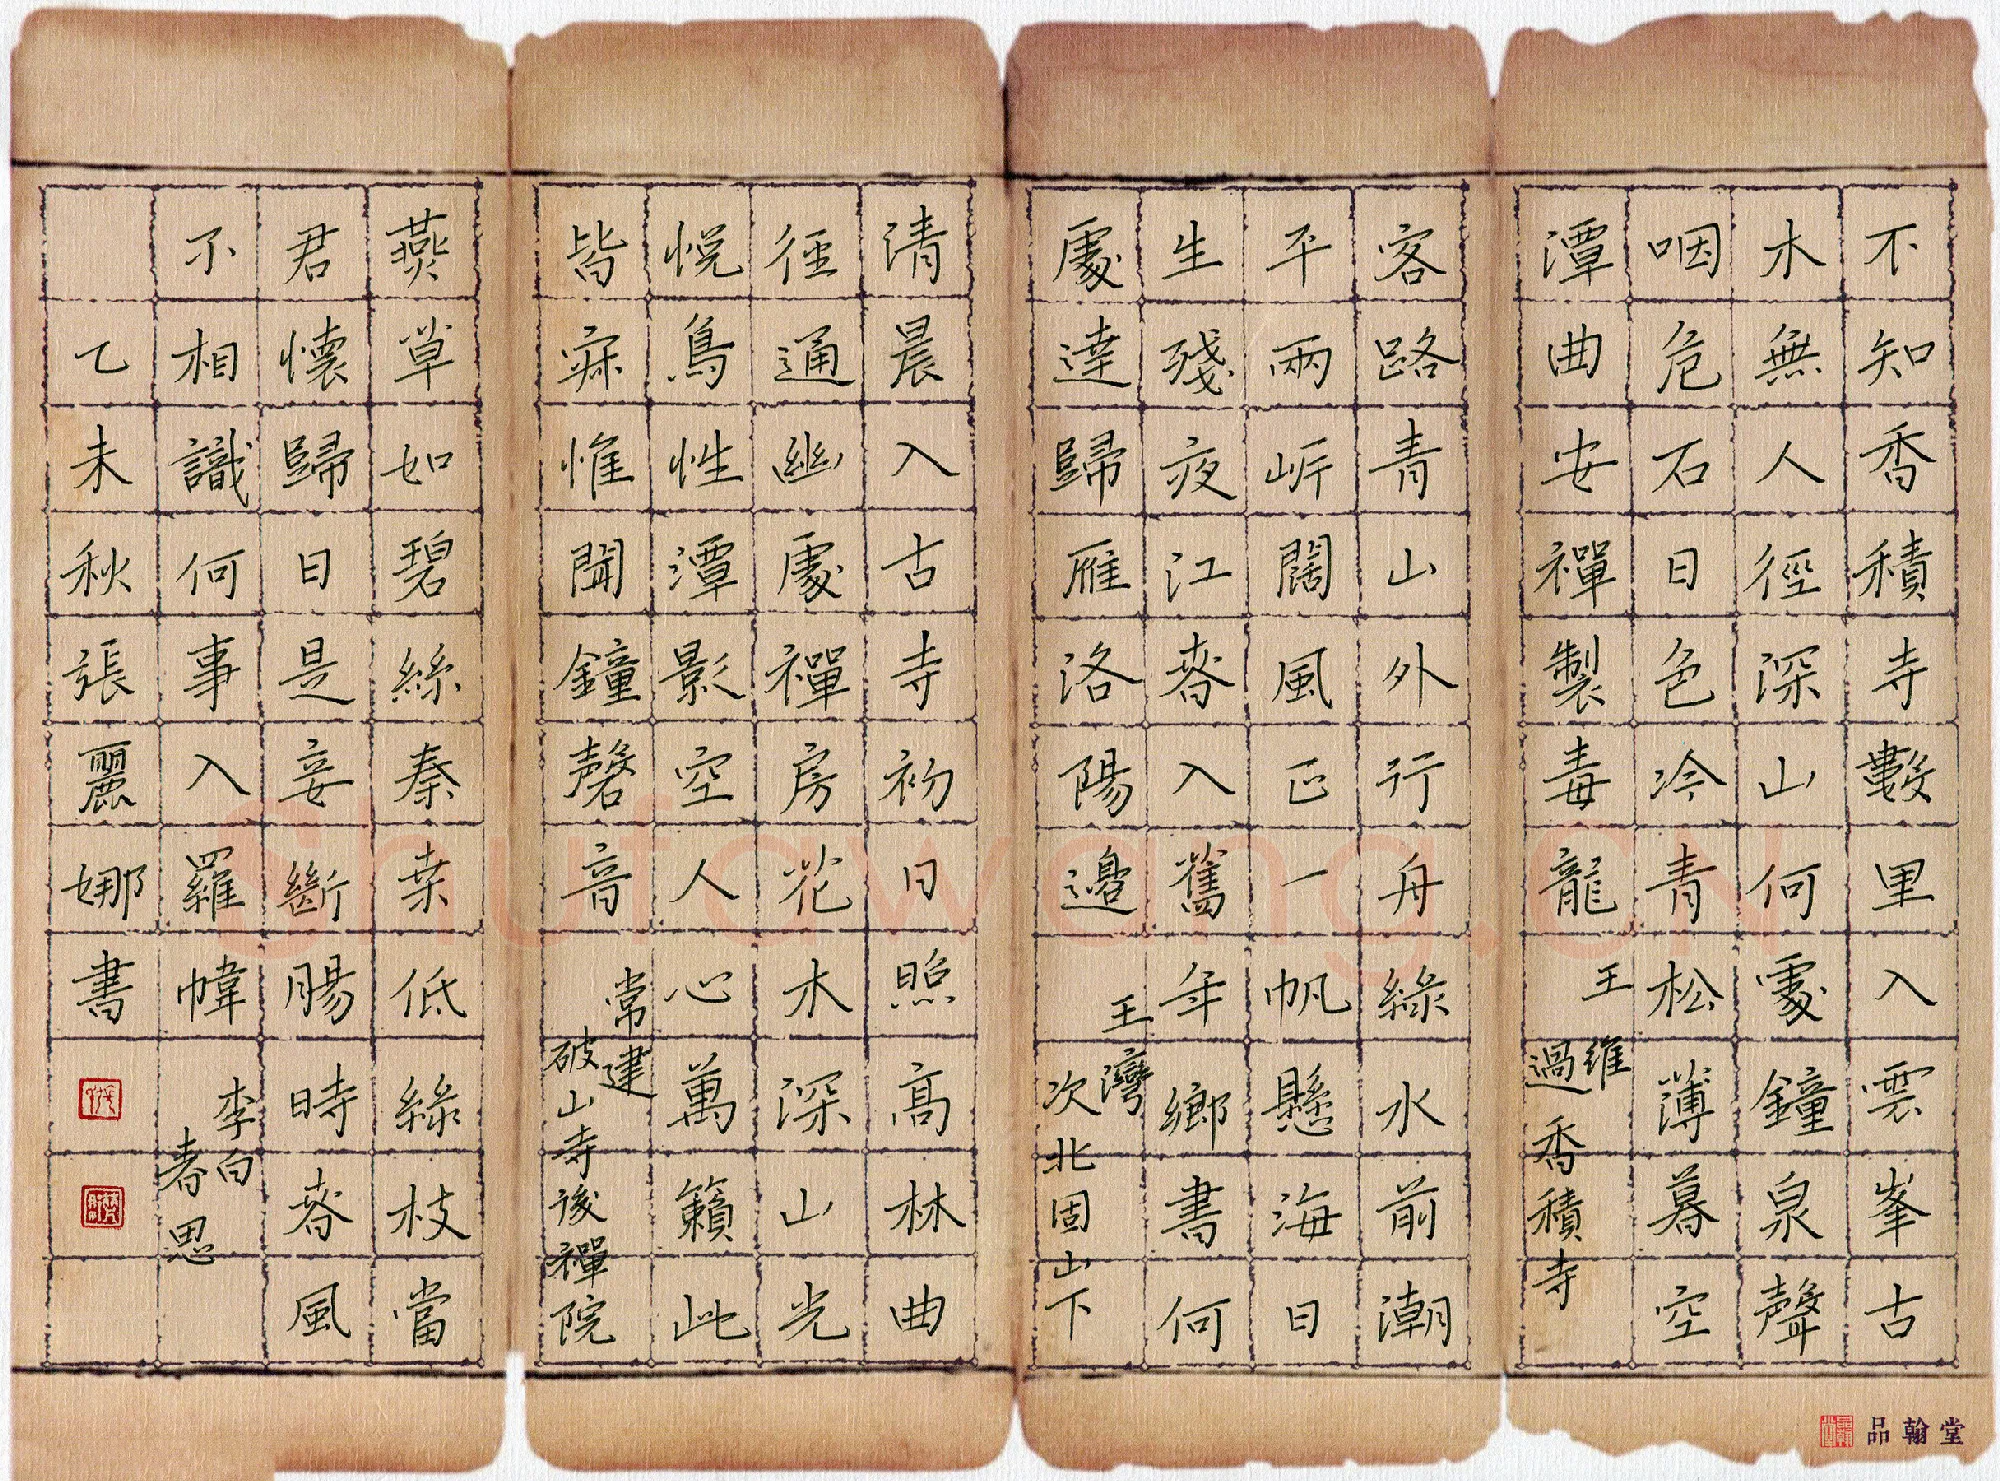 不知香積寺數里入雲峯古
木無人徑深山何處鐘泉聲
咽危石日色冷青松薄暮空
潭曲安禪製毒龍
王維
過香積寺
客路青山外行舟綠水前潮
平兩岸闊風正一帆懸海日
生殘夜江春入舊年鄉書何
處達歸雁洛陽邊
王灣
次北固山下
清晨入古寺初日照高林曲
徑通幽處禪房花木深山光
悅鳥性潭影空人心萬籟此
皆寂惟聞鐘磬音
常建
破山寺後禪院
燕草如碧絲秦桑低綠枝當
君懷歸日是妾斷腸時春風
不相識何事入羅幃
李白
春思
乙未秋張麗娜書
品翰堂
Shufawang.cn